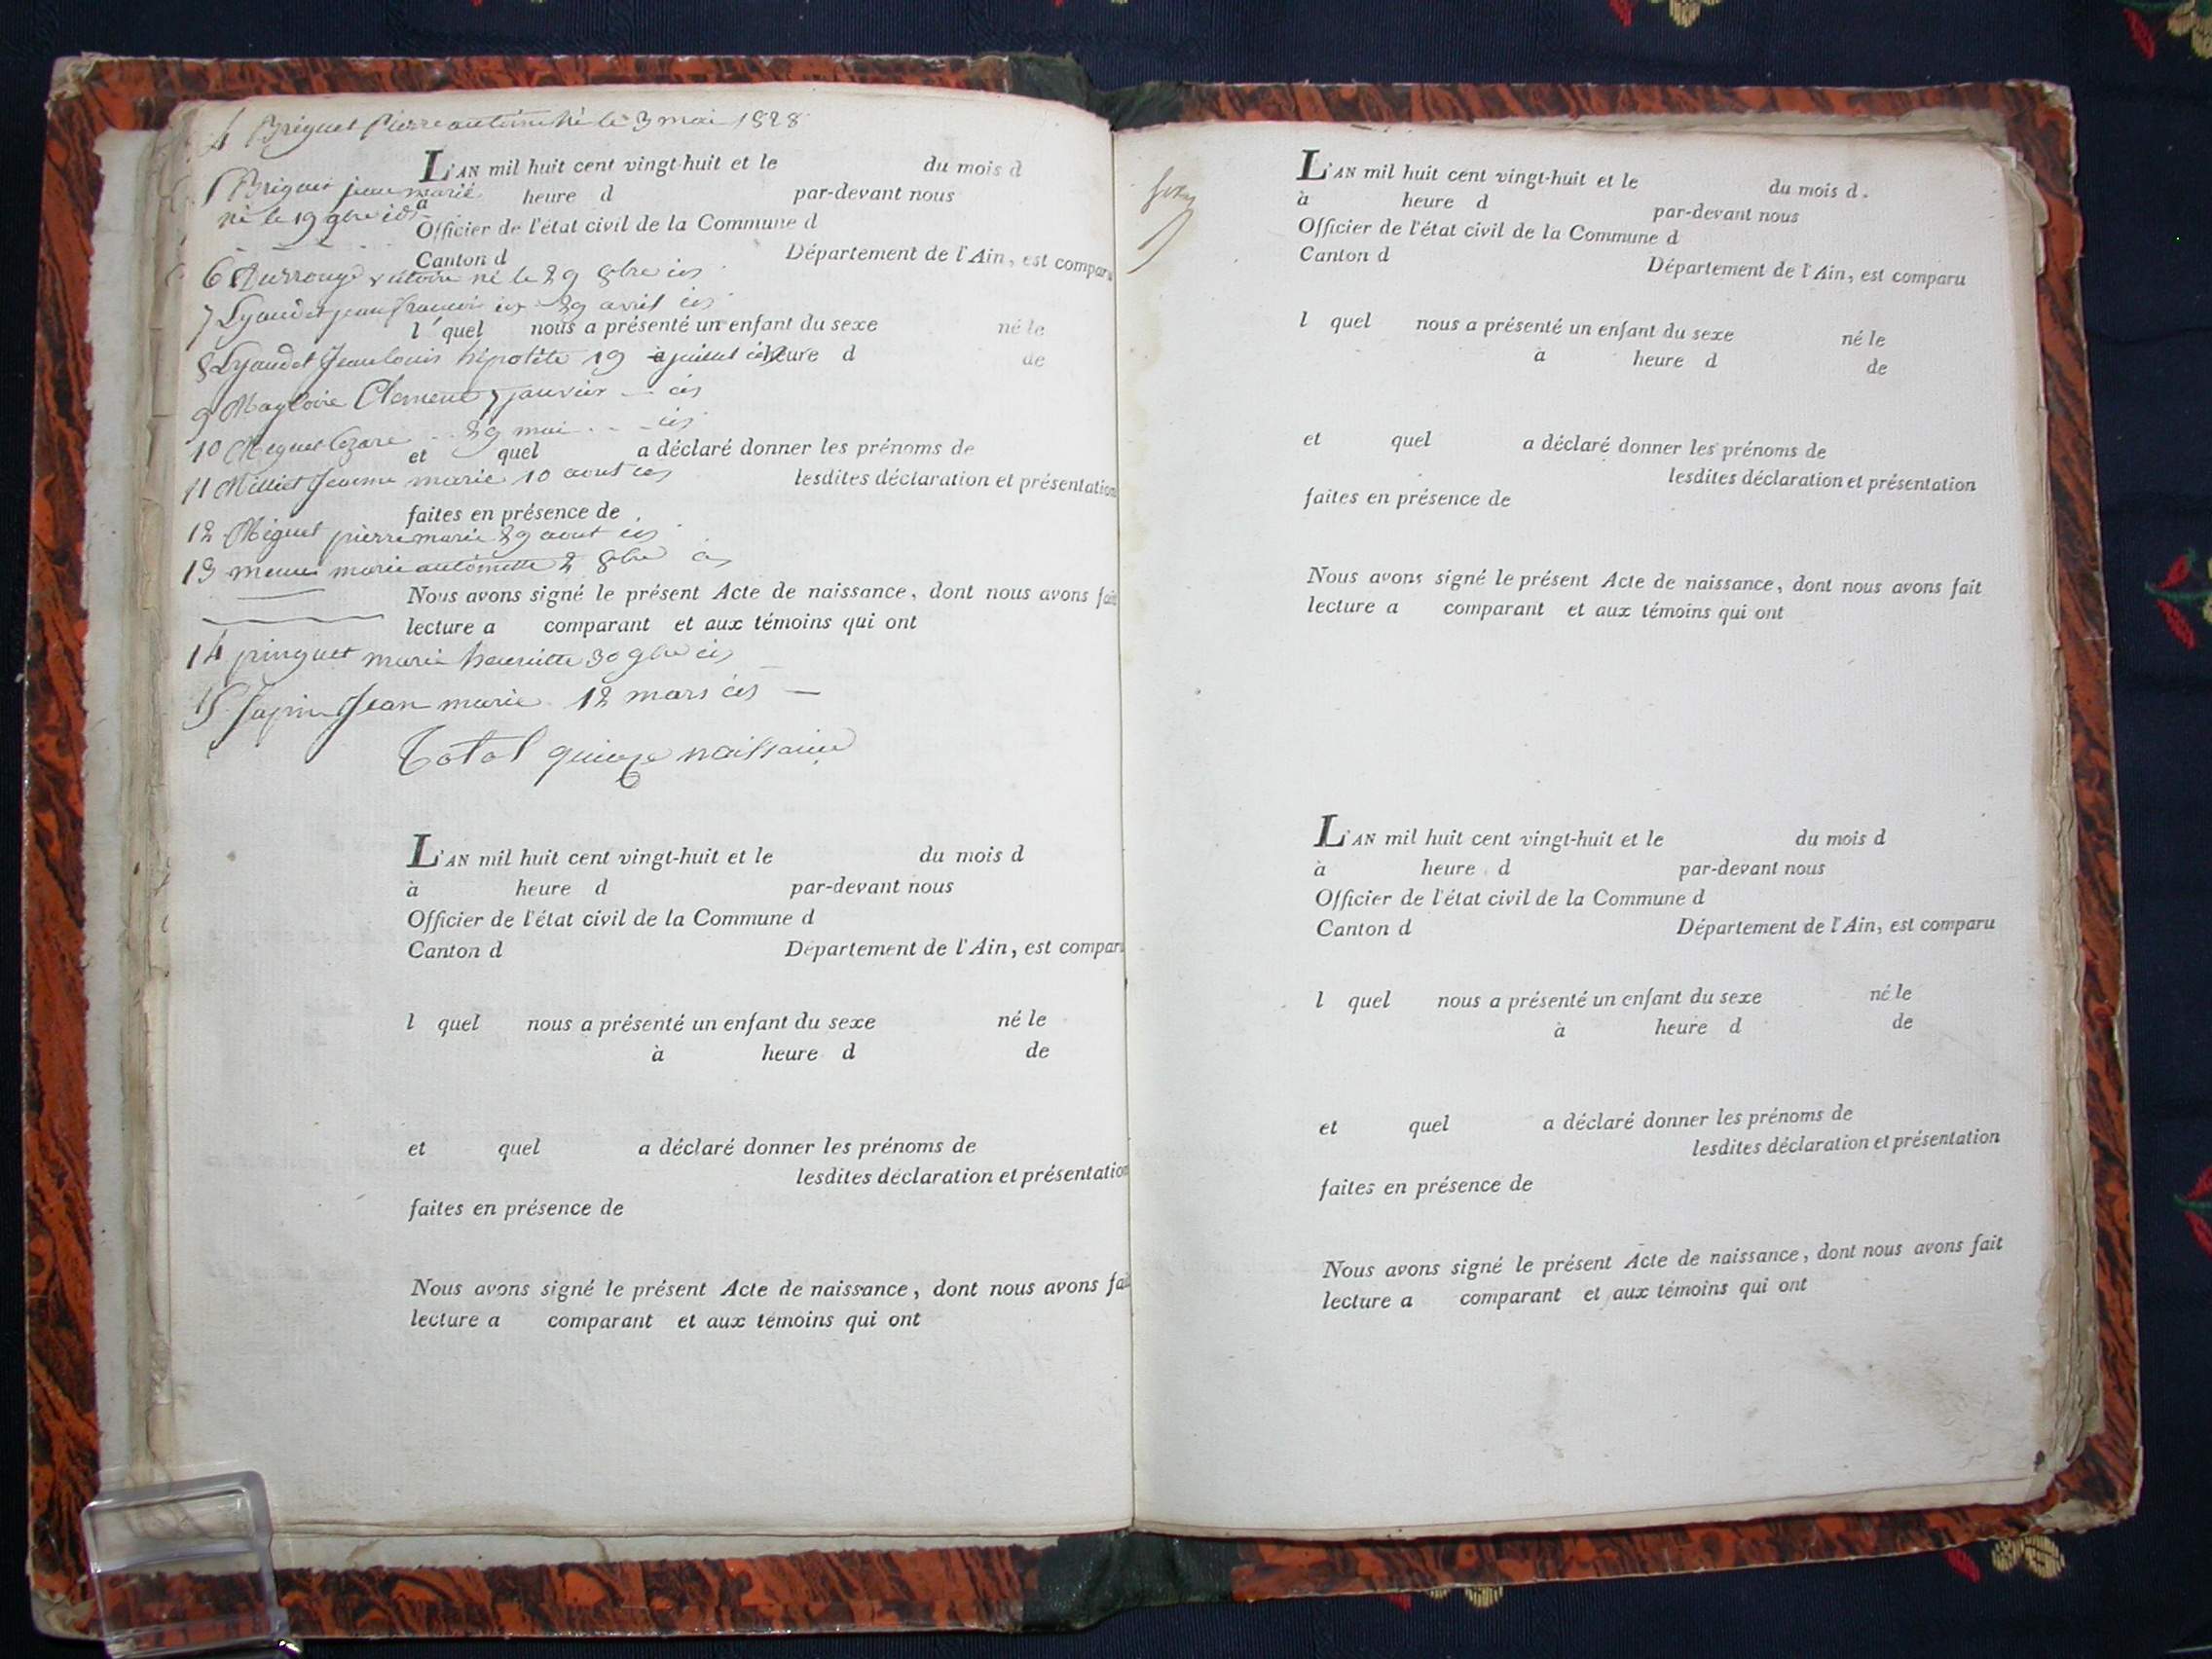 4 Briguet Pierre antoine né le 3 mai 1828
L'AN mil huit cent vingt-huit et le du mois d
5 Briguet jean marié
à heure d par-devant nous
né le 19 9bre
Officier de l'état civil de la Commune d
Canton d Département de l'Ain, est comparu
6 victoire né le 29 8bre
7 Lyaudet jean françois 29 avril
l quel nous a présenté un enfant du sexe né le
8 Lyaudet Jean louis hipolite 19 juillet
à heure d de
9 Magloire Clement 7 janvier
10 Meguet 29 mai
et quel a déclaré donner les prénoms de
11 Milliet Jeanne marie 10 aout
lesdites déclaration et présentation
faites en présence de
12 Méguet pierre marie 29 aout
13 marie antoinette 2 8bre
Nous avons signé le présent Acte de naissance, dont nous avons fait
lecture a comparant et aux témoins qui ont
14 pinguet marie henriette 30 9bre
15 Sapin Jean marie 12 mars
Total quinze naissance
L'AN mil huit cent vingt-huit et le du mois d
à heure d par-devant nous
Officier de l'état civil de la Commune d
Canton d Département de l'Ain, est comparu
l quel nous a présenté un enfant du sexe né le
à heure d de
et quel a déclaré donner les prénoms de
lesdites déclaration et présentation
faites en présence de
Nous avons signé le présent Acte de naissance, dont nous avons fait
lecture a comparant et aux témoins qui ont
L'AN mil huit cent vingt-huit et le du mois d
à heure d par-devant nous
Officier de l'état civil de la Commune d
Canton d Département de l'Ain, est comparu
l quel nous a présenté un enfant du sexe né le
à heure d de
et quel a déclaré donner les prénoms de
lesdites déclaration et présentation
faites en présence de
Nous avons signé le présent Acte de naissance, dont nous avons fait
lecture a comparant et aux témoins qui ont
L'AN mil huit cent vingt-huit et le du mois d
à heure d par-devant nous
Officier de l'état civil de la Commune d
Canton d Département de l'Ain, est comparu
l quel nous a présenté un enfant du sexe né le
à heure d de
et quel a déclaré donner les prénoms de
lesdites déclaration et présentation
faites en présence de
Nous avons signé le présent Acte de naissance, dont nous avons fait
lecture a comparant et aux témoins qui ont